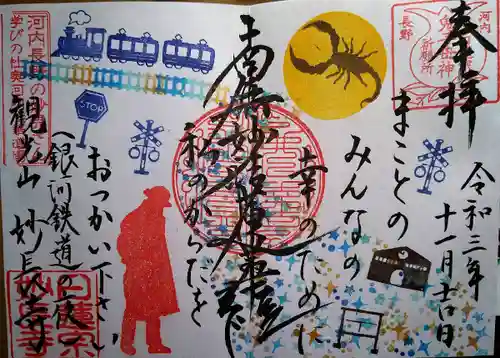 奉拝
令和三年
十一月吉日
河内
長野
祈願所
まことの
みんなの
幸のために
南無妙法蓮華経
私のからだを
おつかい下さい
(銀河鉄道の夜)
STOP
観光山 妙長寺
河内長野の
日蓮宗
妙長寺